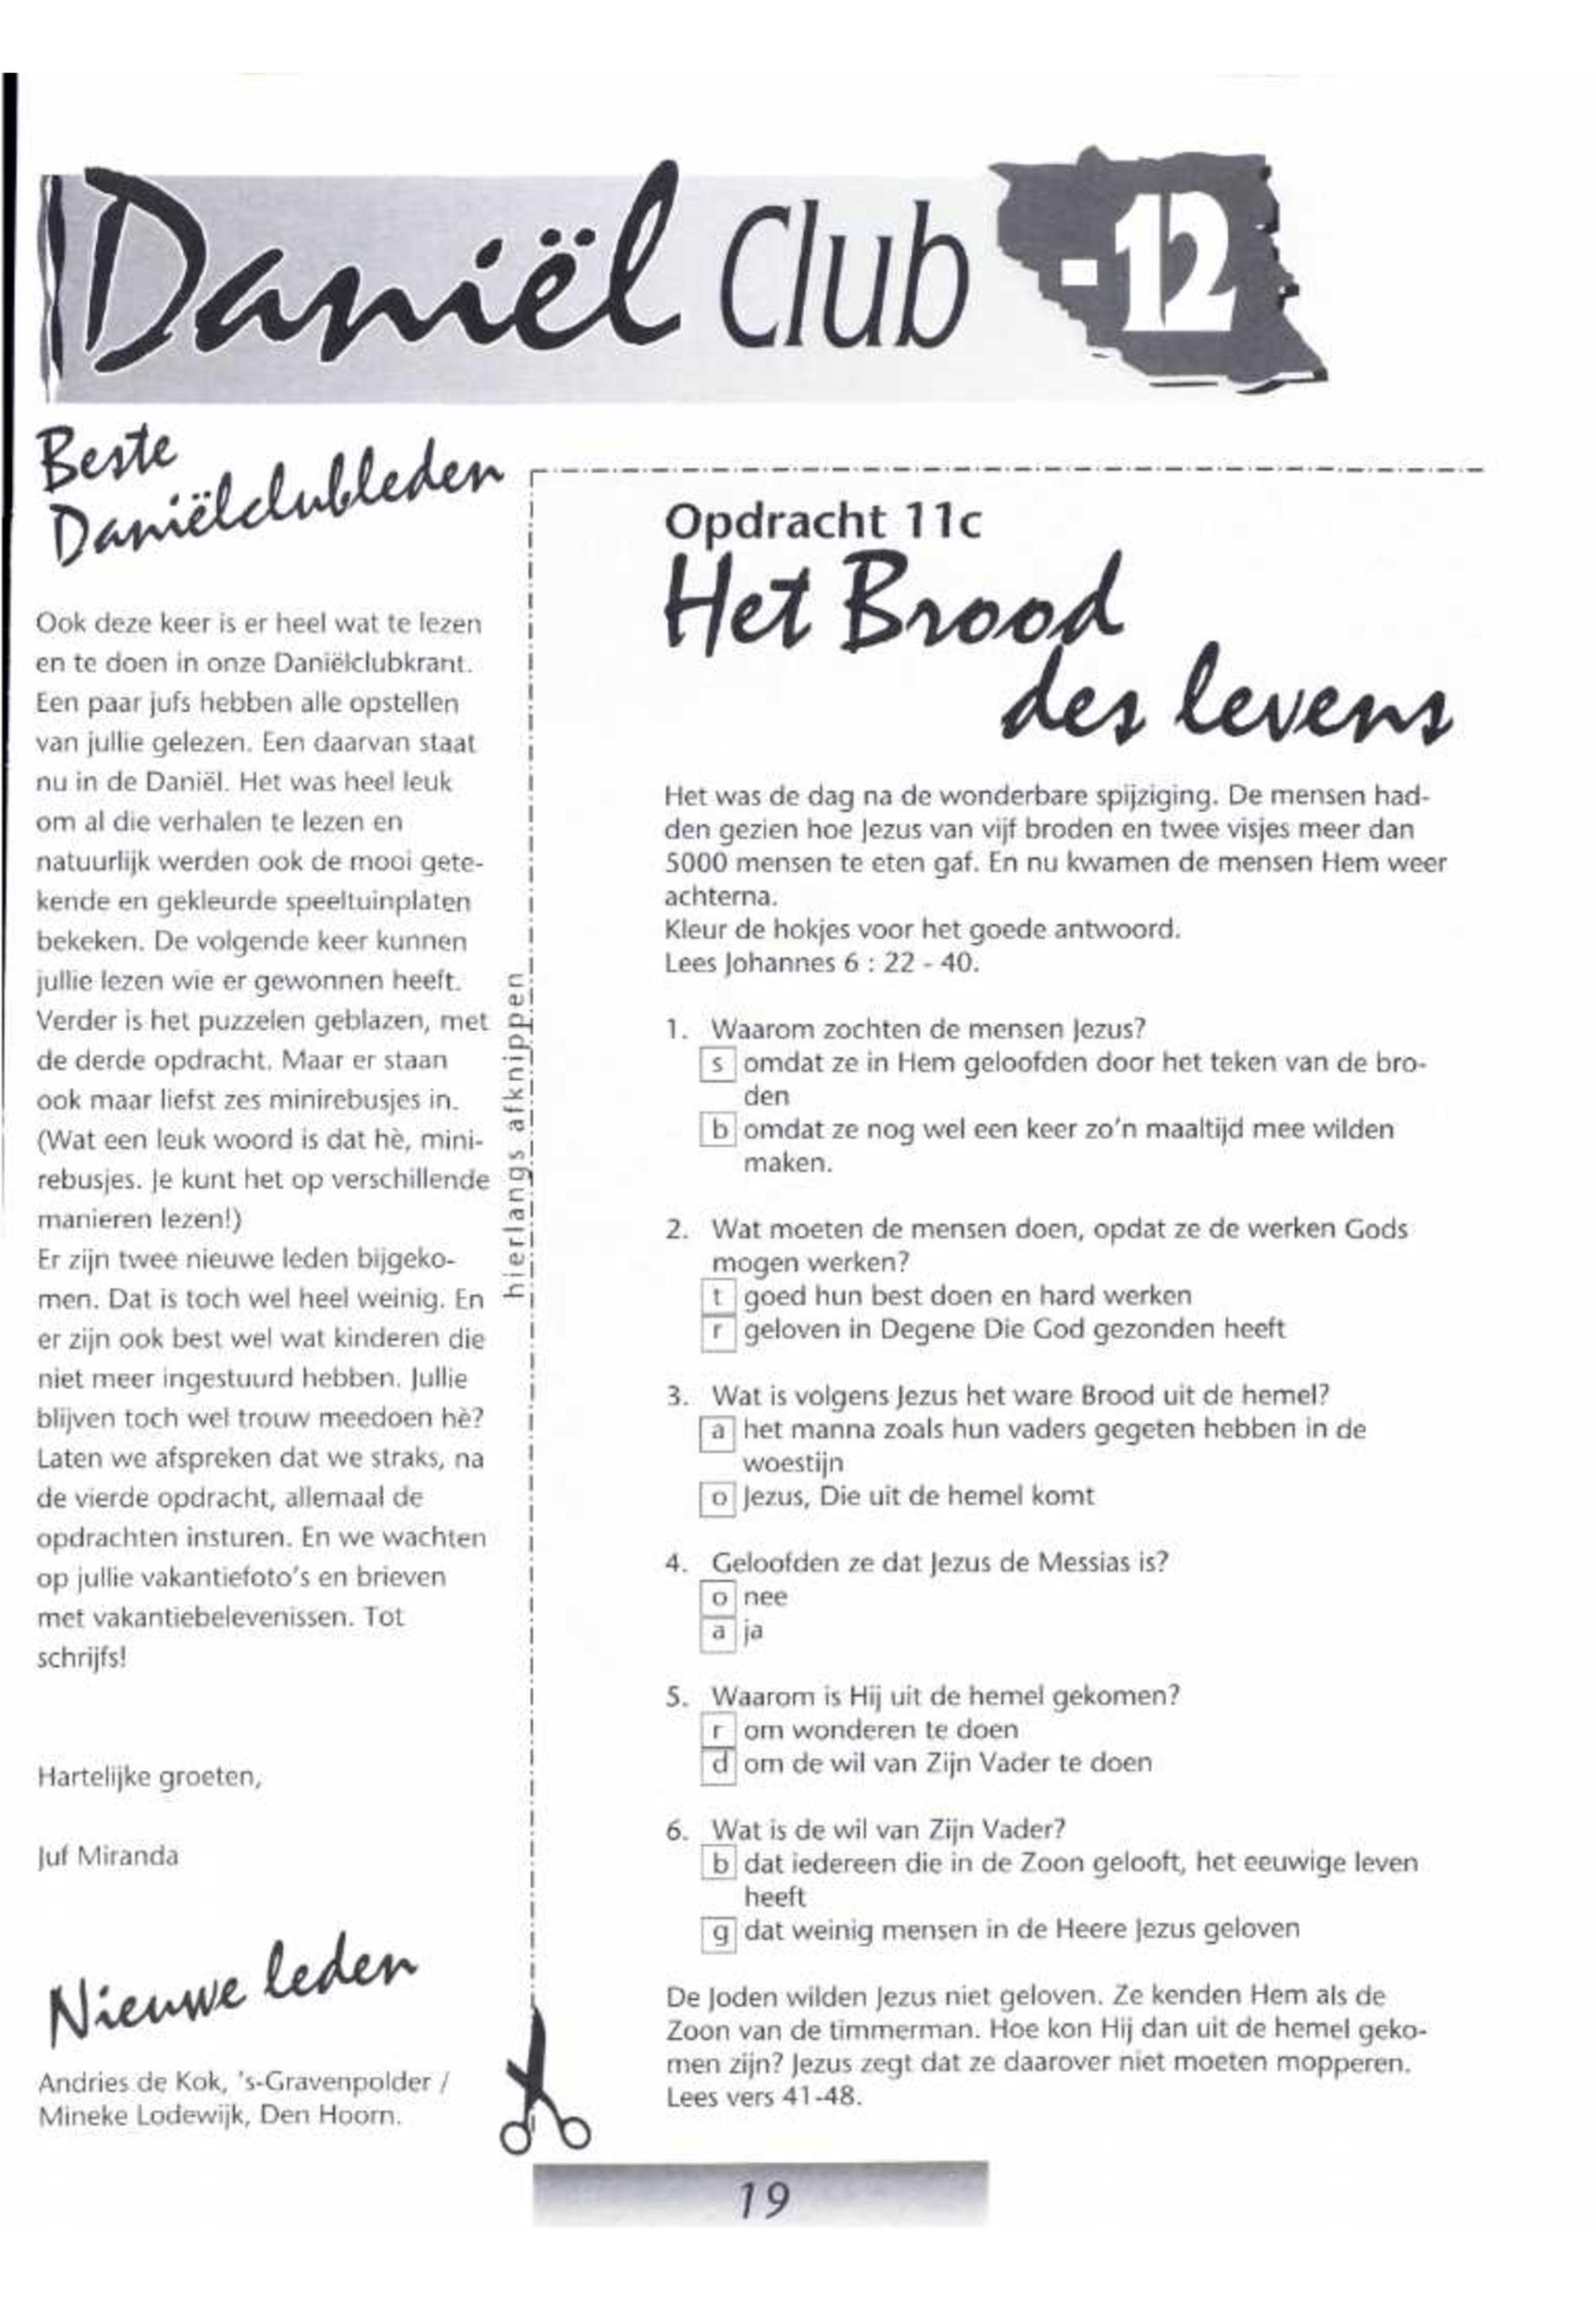 Daniël Club -12
Beste
Daniëlclubleden
Ook deze keer is er heel wat te lezen
en te doen in onze Daniëlclubkrant.
Een paar jufs hebben alle opstellen
van jullie gelezen. Een daarvan staat
nu in de Daniël. Het was heel leuk
om al die verhalen te lezen en
natuurlijk werden ook de mooi gete-
kende en gekleurde speeltuinplaten
bekeken. De volgende keer kunnen
jullie lezen wie er gewonnen heeft.
Verder is het puzzelen geblazen, met
de derde opdracht. Maar er staan
ook maar liefst zes minirebusjes in.
(Wat een leuk woord is dat hè, mini-
rebusjes. Je kunt het op verschillende
manieren lezen!)
Er zijn twee nieuwe leden bijgeko-
men. Dat is toch wel heel weinig. En
er zijn ook best wel wat kinderen die
niet meer ingestuurd hebben. Jullie
blijven toch wel trouw meedoen hè?
Laten we afspreken dat we straks, na
de vierde opdracht, allemaal de
opdrachten insturen. En we wachten
op jullie vakantiefoto's en brieven
met vakantiebelevenissen. Tot
schrijfs!
Hartelijke groeten,
Juf Miranda
Nieuwe leden
Andries de Kok, 's-Gravenpolder /
Mineke Lodewijk, Den Hoorn.
hierlangs afknippen
Opdracht 11c
Het Brood
des levens
Het was de dag na de wonderbare spijziging. De mensen had-
den gezien hoe Jezus van vijf broden en twee visjes meer dan
5000 mensen te eten gaf. En nu kwamen de mensen Hem weer
achterna.
Kleur de hokjes voor het goede antwoord.
Lees Johannes 6 : 22 - 40.
1. Waarom zochten de mensen Jezus?
s omdat ze in Hem geloofden door het teken van de bro-
den
b omdat ze nog wel een keer zo'n maaltijd mee wilden
maken.
2. Wat moeten de mensen doen, opdat ze de werken Gods
mogen werken?
t goed hun best doen en hard werken
r geloven in Degene Die God gezonden heeft
3. Wat is volgens Jezus het ware Brood uit de hemel?
a het manna zoals hun vaders gegeten hebben in de
woestijn
o Jezus, Die uit de hemel komt
4. Geloofden ze dat Jezus de Messias is?
o nee
a ja
5. Waarom is Hij uit de hemel gekomen?
r om wonderen te doen
d om de wil van Zijn Vader te doen
6. Wat is de wil van Zijn Vader?
b dat iedereen die in de Zoon gelooft, het eeuwige leven
heeft
g dat weinig mensen in de Heere Jezus geloven
De Joden wilden Jezus niet geloven. Ze kenden Hem als de
Zoon van de timmerman. Hoe kon Hij dan uit de hemel geko-
men zijn? Jezus zegt dat ze daarover niet moeten mopperen.
Lees vers 41-48.
19